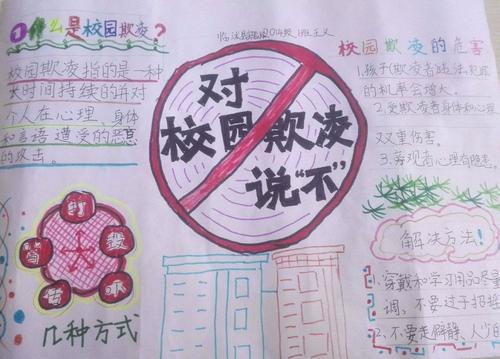 1 什么是校园欺凌?
校园欺凌指的是一种
长时间持续的并对
个人在心理、身体
和言语遭受的恶意
的攻击。
对
校园欺凌
说“不”
校园欺凌的危害
1.孩子(欺凌者)违法犯罪
的机率会增大。
2.受欺凌者身体和心理
双重伤害。
3.旁观者心理有隐患。
打
骂
毁
吓
几种方式
解决方法!
1、穿戴和学习用品尽量
调,不要过于招摇
2、不要走僻静、人少的